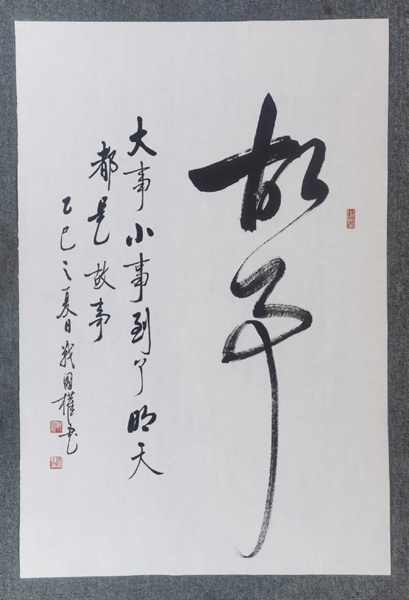 故事
大事小事到了明天
都是故事
乙巳之夏日戰國權书